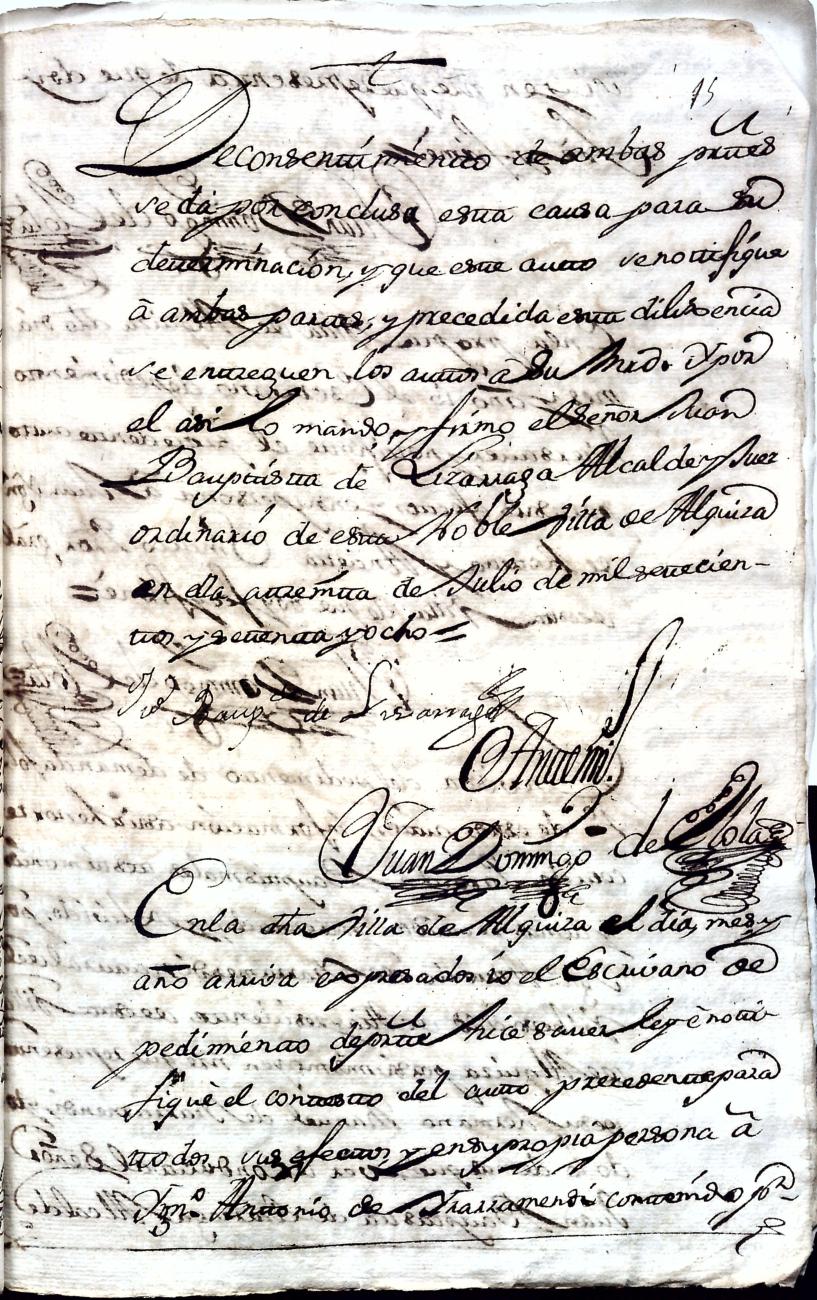 15
De consentimiento de ambas prttes
se dá por conclusa esta causa para su
determinación, y que este auto se notifique
â ambas partes, y precedida esta dilixencia
se entreguen los autos â su Mrd. Y por
el asi lo mando, firmo el señor Juan
Bauptista de Lizarraga Alcalde y Juez
ordinario de esta Noble Villa de Alquiza
en dia a treinta de Julio de mil setecien-
tos y setenta y ocho =
Jn Baupta de Lizarraga
Ante mi
Juan Domingo de
En la dha Villa de Alquiza el dia, mes y
año arriva expresados io el Escrivano de
pedimiento de prtte hice saver ley è noti-
fiquè el contesto del auto precedente para
todos sus efectos y en su propia persona â
Antonio de Yrarramendi contenido pr